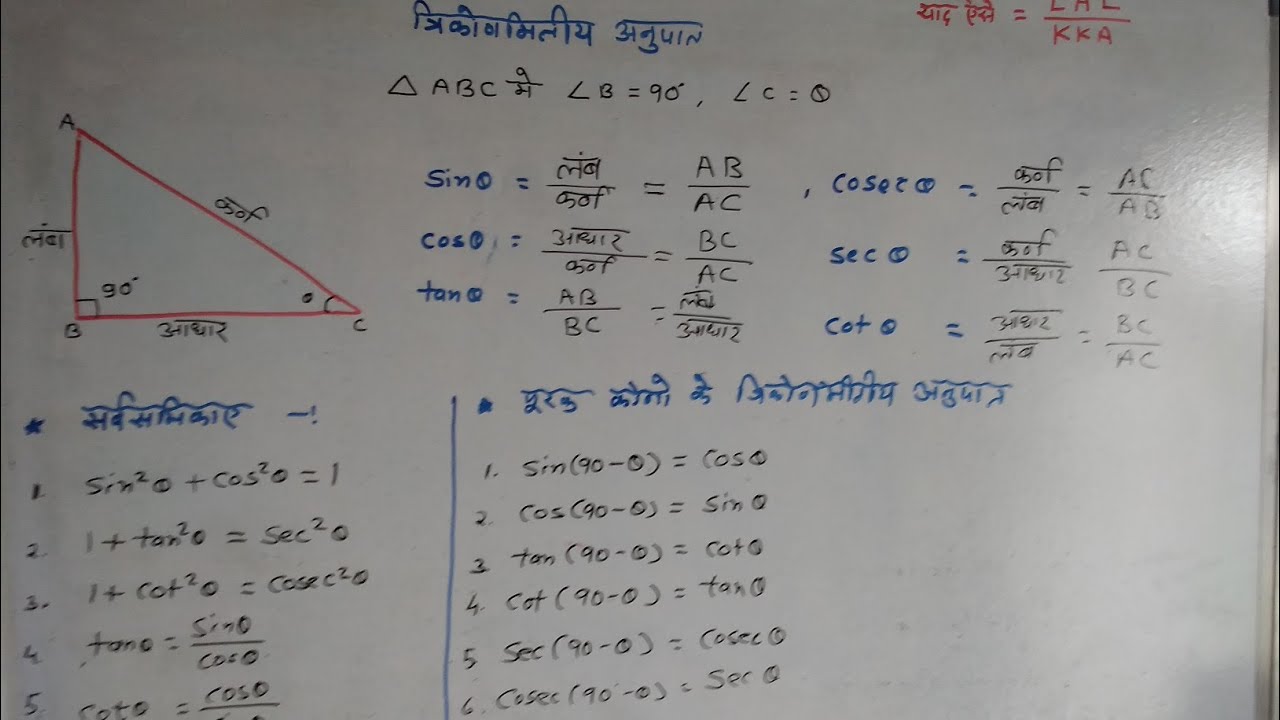 त्रिकोणमितीय अनुपात
याद ऐसे = LAL / KKA
△ ABC मे ∠B = 90°, ∠C = θ
A
लंब
कर्ण
90°
θ
B
आधार
C
sinθ = लंब / कर्ण = AB / AC , cosecθ = कर्ण / लंब = AC / AB
cosθ = आधार / कर्ण = BC / AC
secθ = कर्ण / आधार AC / BC
tanθ = AB / BC = लंब / आधार
cotθ = आधार / लंब = BC / AC
* सर्वसमिकाए -:
1. sin²θ + cos²θ = 1
2. 1 + tan²θ = sec²θ
3. 1 + cot²θ = cosec²θ
4. tanθ = sinθ / cosθ
5. cotθ = cosθ /
* पूरक कोणो के त्रिकोणमीतीय अनुपात
1. sin(90-θ) = cosθ
2. cos(90-θ) = sinθ
3. tan(90-θ) = cotθ
4. cot(90-θ) = tanθ
5. sec(90-θ) = cosecθ
6. cosec(90°-θ) = secθ